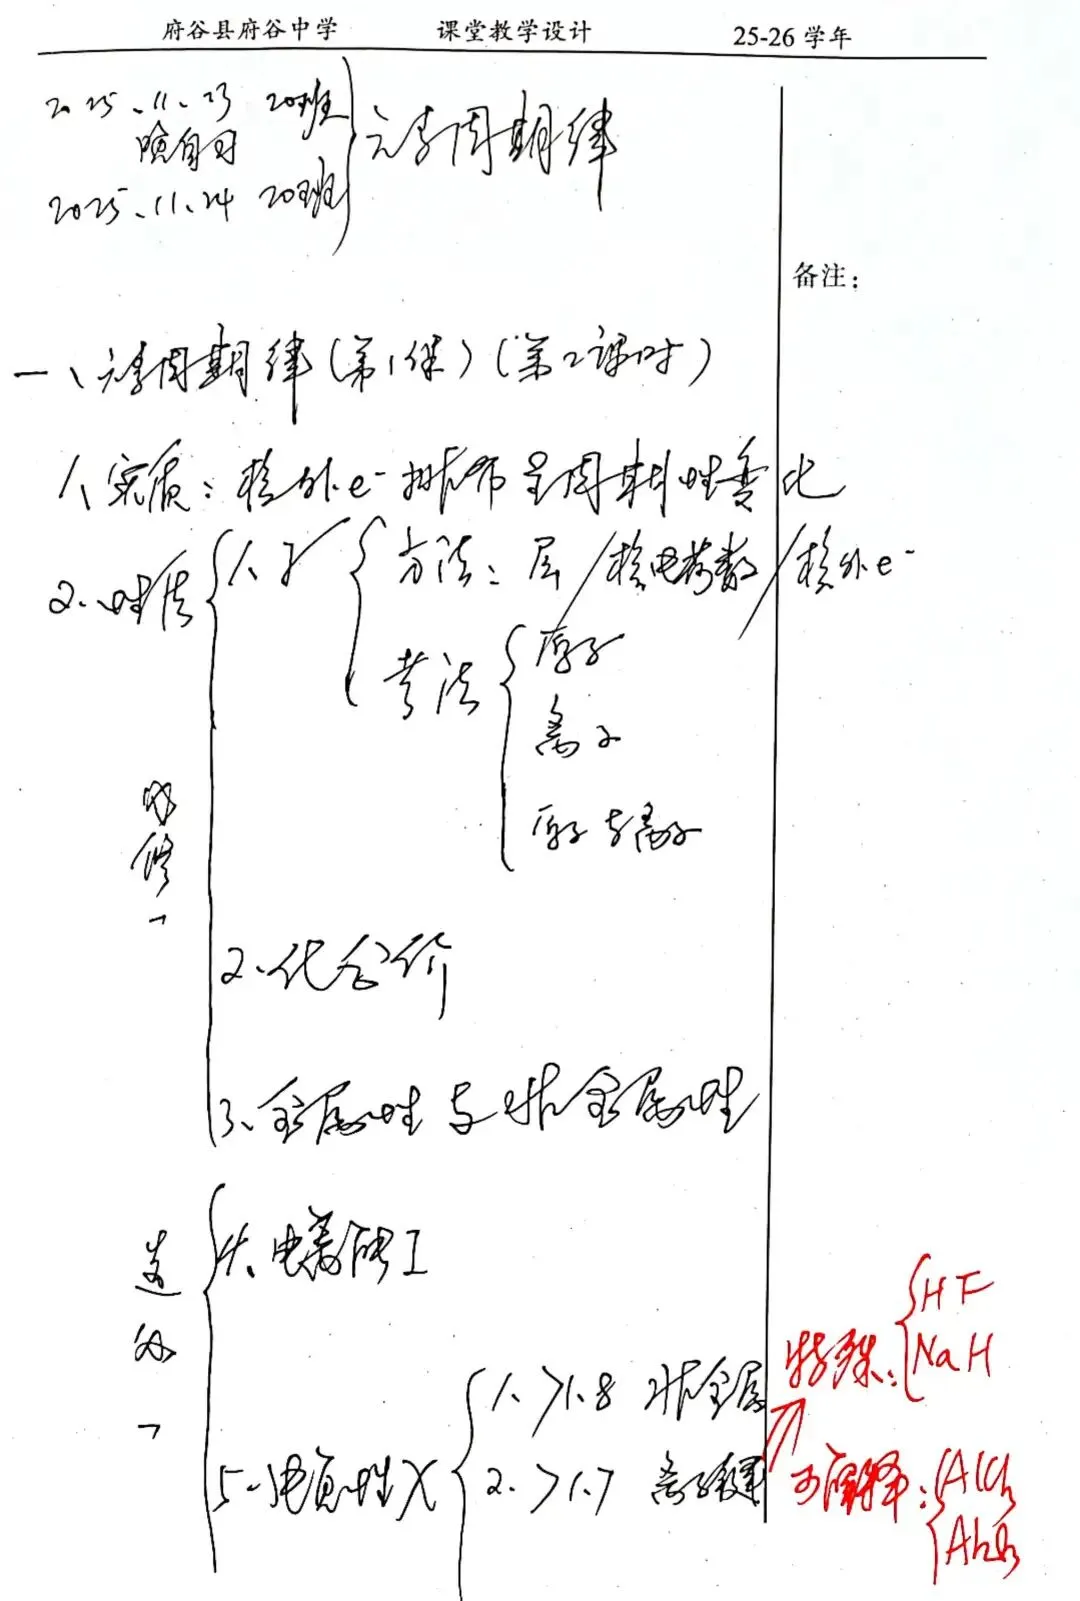 府谷县府谷中学 课堂教学设计 25-26 学年
2025.11.23 20班
晚自习
2025.11.24 20班
元素周期律
备注：
一、元素周期律（第1课）（第2课时）
1、实质：核外e⁻排布呈周期性变化
2、性质
1、r
方法：层/核电荷数/核外e⁻
考法
原子
离子
原子与离子
必修一
2、化合价
3、金属性与非金属性
选必一
4、电离能I
5、电负性X
1、>1.8 非金属
2、>1.7 离子键
特殊：
HF
NaH
可解释：
AlCl₃